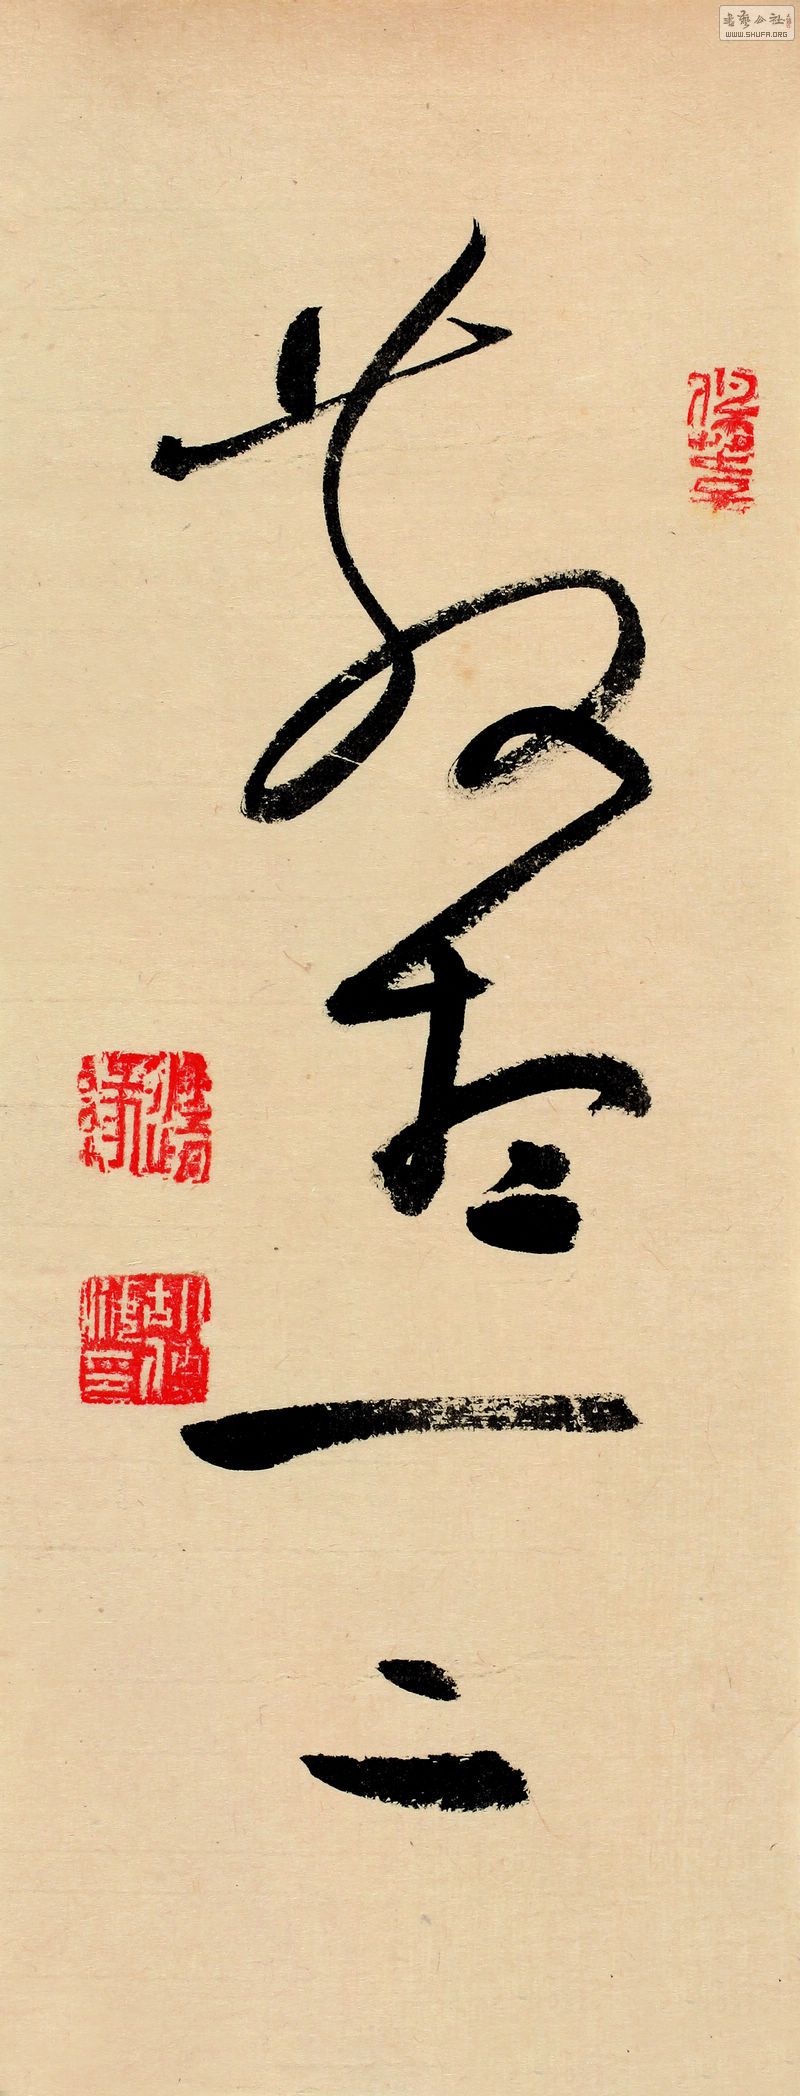 書藝公社
WWW.SHUFA.ORG
常想一二